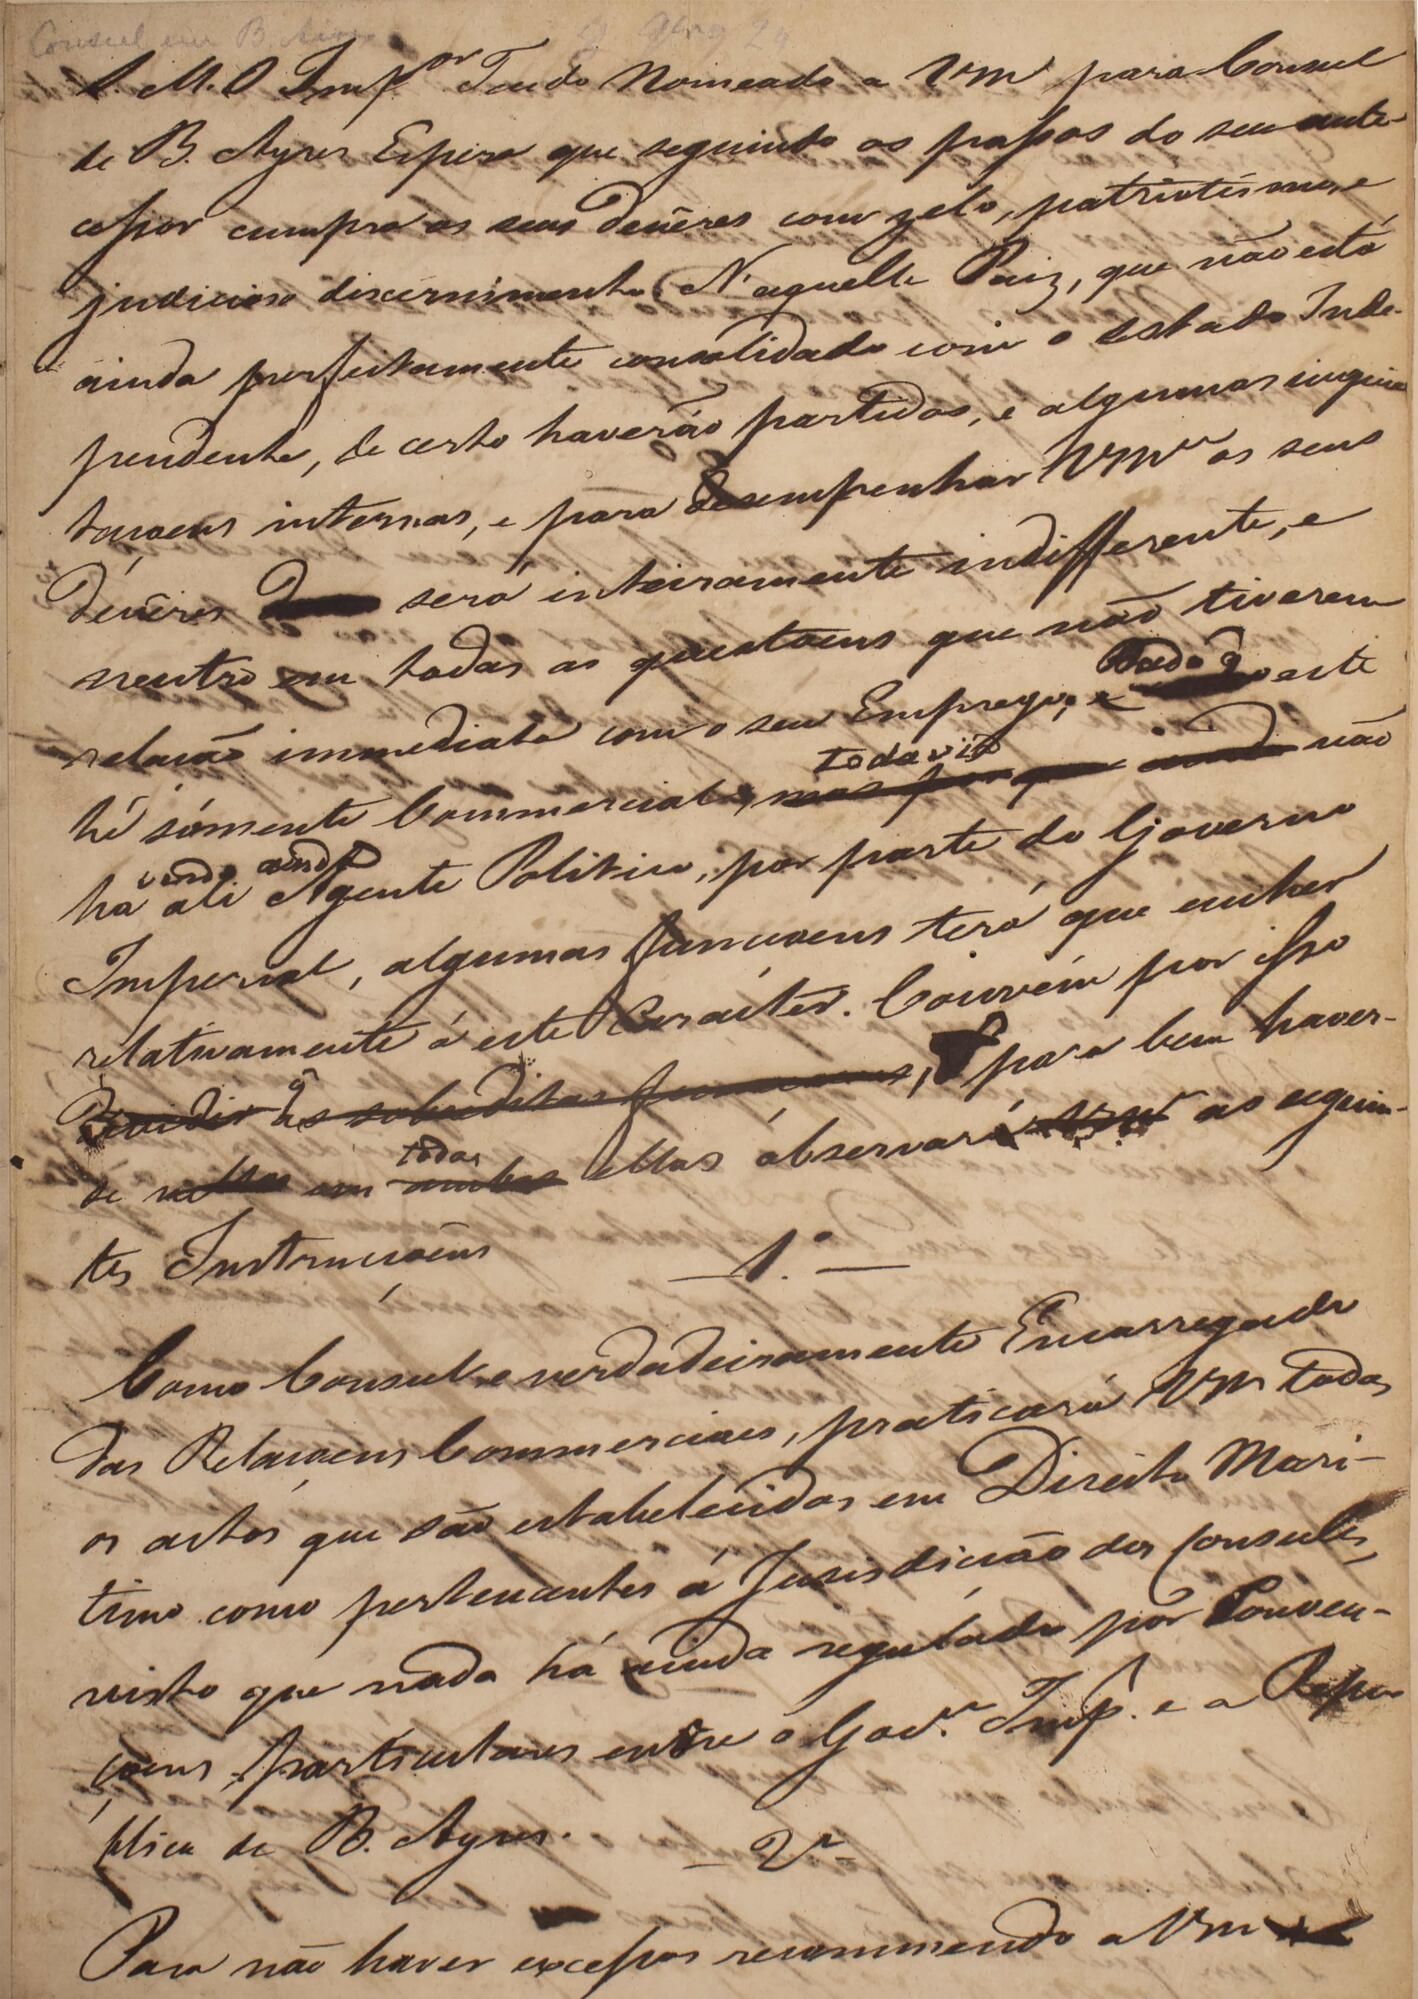 Consul em B. Aires
S. M. O Imp.or Tendo Nomeado a Vm.ce para Consul
de B. Ayres Espera que seguindo os passos do seu ante-
cessor cumpra os seus devêres com zelo, patriotismo, e
judicioso discernimento. N'aquelle Paiz, que não está
ainda perfeitamente consolidado com o estado Inde-
pendente, de certo haverão partidos, e algumas inquie
taçoens internas, e para desempenhar Vm.ce os seus
devêres será inteiramente indifferente, e
neutro em todas as questoens que não tiverem
relação immediata com o seu Emprego; e Bemdo q este
hé sómente Commercial, mas por que ainda todavia não
há ali inda ainda Agente Politico, por parte do Governo
Imperial, algumas funcçoens terá que encher
relativamente á este Caracter. Convém por isso
dividir q as sobreditas funcçoens, para bem haver-
se nellas em ambas todas ellas observará Vm.ce as seguin-
tes Instrucçoens
1.º
Como Consul, e verdadeiramente Encarregado
das Relaçoens Commerciaes, praticará Vm todos
os actos que são estabelecidos em Direito Mari-
timo como pertencentes á Jurisdicção dos Consules,
visto que nada há ainda regulado por Conven-
çoens particulares entre o Gov.º Imp.l e a Repu
blica de B. Ayres.
2.º
Para não haver excessos recommendo a Vm